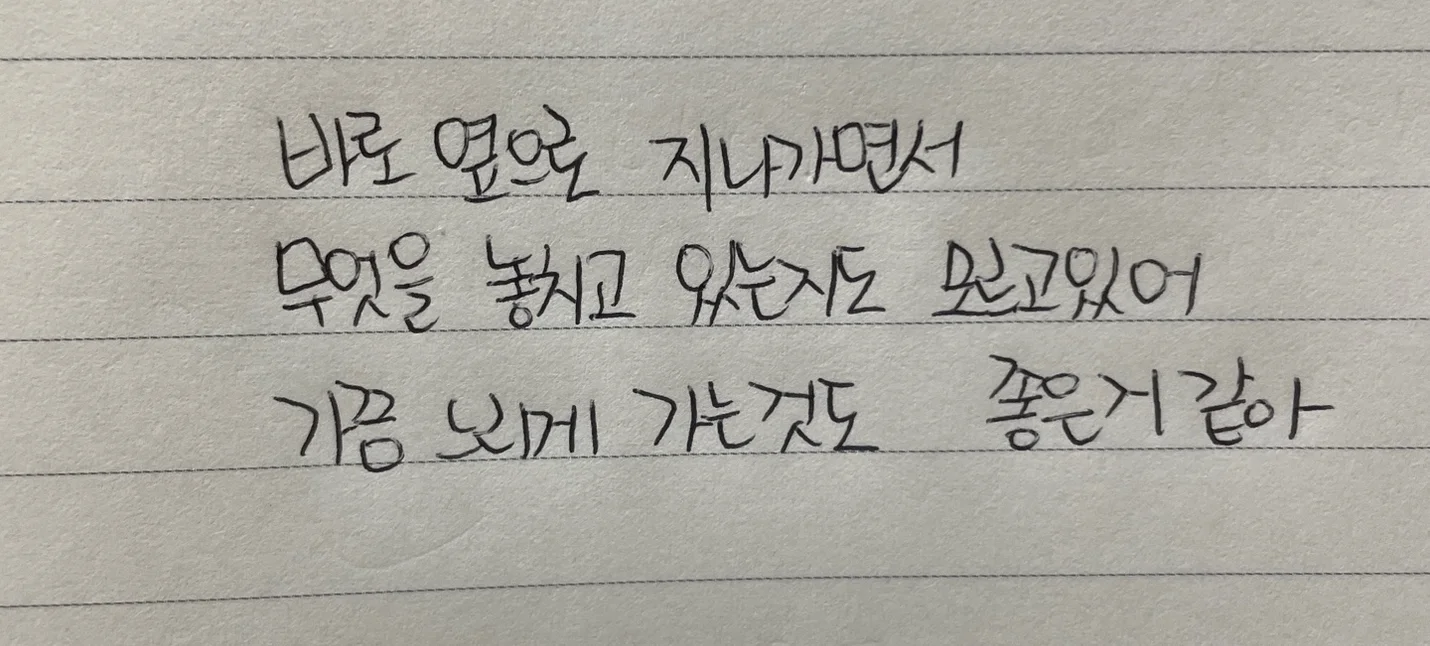 바로 옆으로 지나가면서
무엇을 놓치고 있는지도 모르고있어
가끔 느리게 가는것도 좋은거 같아